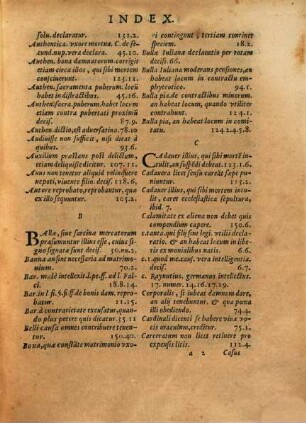 INDEX.
solu. declaratur. 131.2.
Authentica. vxori mortua. C. de se-
cund.nup. vera declara. 45.10.
Authen. bona damnatorum. corrigit
etiam circa illos, qui sibi mortem
consciuerunt. 123.15.
Authen. sacramenta puberum. loco
habet in disfractibus. 23.4.
Authen. sacra puberum. habet locum
etiam contra pubertati proximu
deci. 87.9.
Authen. dictio, est aduersatiua. 78.10
Audiuisse non sufficit, nisi dicat à
quibus. 95.6.
Auxilium praestans post delictum,
etiam deliquisse dicitur. 107.11.
Auus non tenetur aliquid volens suere
nepoti, viuente filio. deci. 118.6.
Autore reprobato, reprobatur, quod
ex illo sequuntur. 105.2.
B
BAlla, siue sarcina mercatorum
praesumitur illius esse, cuius si-
gno signata sunt. deci. 50.nu.2.
Banna an sunt necessaria ad matrimo-
nium. 70.2.
Bar. male intellexit. l. pe. ff. ad l. Fal-
ci. 18.8.14.
Bar. in l. si. §. si. ff. de bonis dam. repro-
batur. 11.15.
Bar. à contrarietate excusatur, quan-
do plus petere quis dicatur. 35.11
Belli causa omnes contribuere tenen-
tur. 150.40.
Bona, quae constante matrimonio vxo-
ri contingunt, tertiam continet
speciem. 18.1.
Bulla Iuliana declaratio per rotam
decisi. 66.4.
Bulla Iuliana moderans pensiones, an
habeat locum in contractu em-
phyteotico. 94.1.
Bulla pia, de contractibus minorum,
an habeat locum, quando vtiliter
contrahunt. 121.1.
Bulla pia, an habeat locum in comi-
tatu. 124.2.4.5.8.
C
CAdauer illius, qui sibi mortē intu-
lit, an suspēdi debeat. 123.1.6.
Cadauera licet sensu careāt sæpe pu-
niuntur. 15.2.
Cadauer illius, qui sibi mortem inco-
lit, caret ecclesiastica sepultura,
ibid. 7.
Calamitate ex aliena non debet quis
compendium capere. 150.6.
c. tanta. qui filij sint legi. vtilis decla-
ratio. & an habeat locum in libe-
ris ex monialibus natis. 6.6.
c. 1. quod me. cau. vera intelligentia.
deci. 5.7.
c. Raynutius, germanus intellectus.
17. numer. 14.16.17.19.
Corporalis, si iubeat domum dare,
an alij tenebuntur, & qua pœna
illi obediendo. 74.4.
Cardinali dicenti se habere viuæ vo-
cis oraculum, creditur. 75.1.
Carceratum non licet retinere pro
expensis litis. 112.4.
a 2 Casus